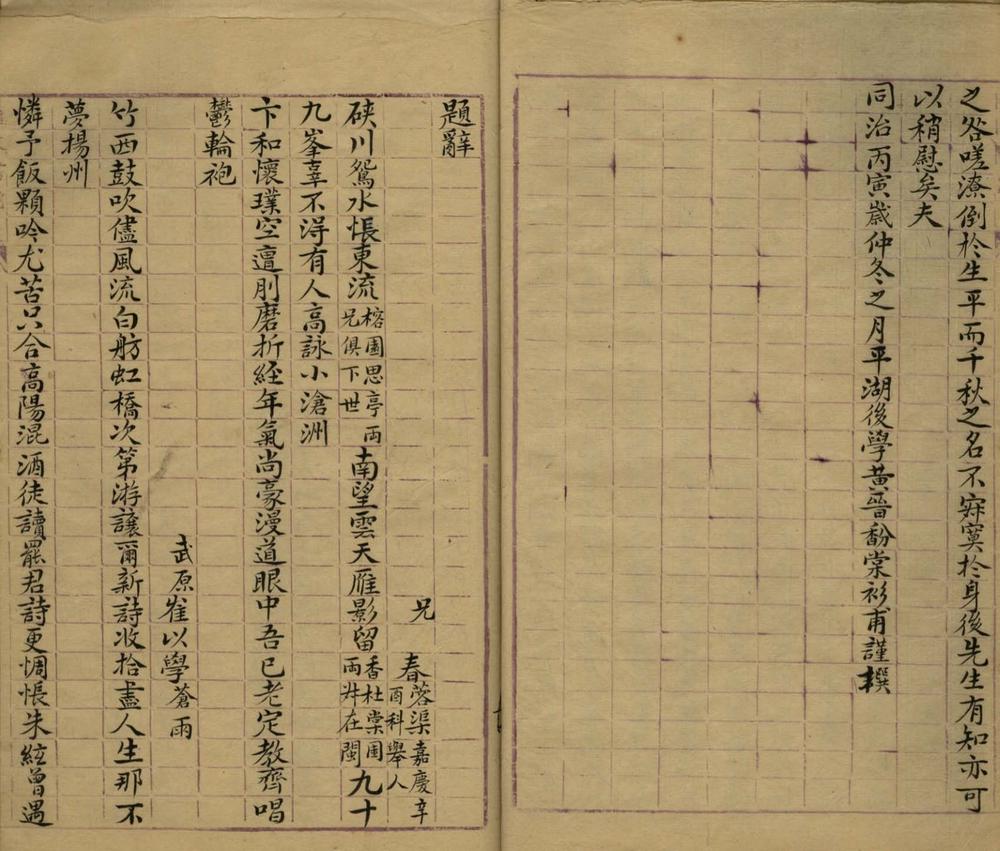 之咎嗟潦倒於生平而千秋之名不寂寞於身後先生有知亦可
以稍慰矣夫
同治丙寅歲仲冬之月平湖後學黃晉馚棠衫甫謹撰
題辭
兄春蓉渠嘉慶辛酉科舉人
硤川鴛水悵東流榕園思亭兩兄俱下世南望雲天雁影留香杜棠圃兩弁在閩九十
九峯臺不得有人高詠小滄洲
卞和懷璞空遭刖磨折經年氣尚豪漫道眼中吾已老定教齊唱
鬱輪袍
武原崔以學蒼雨
竹西鼓吹儘風流白舫虹橋次第游讓爾新詩收拾盡人生那不
夢揚州
憐予飯顆吟尤苦只合高陽混酒徒讀罷君詩更惆悵朱絃曾遇